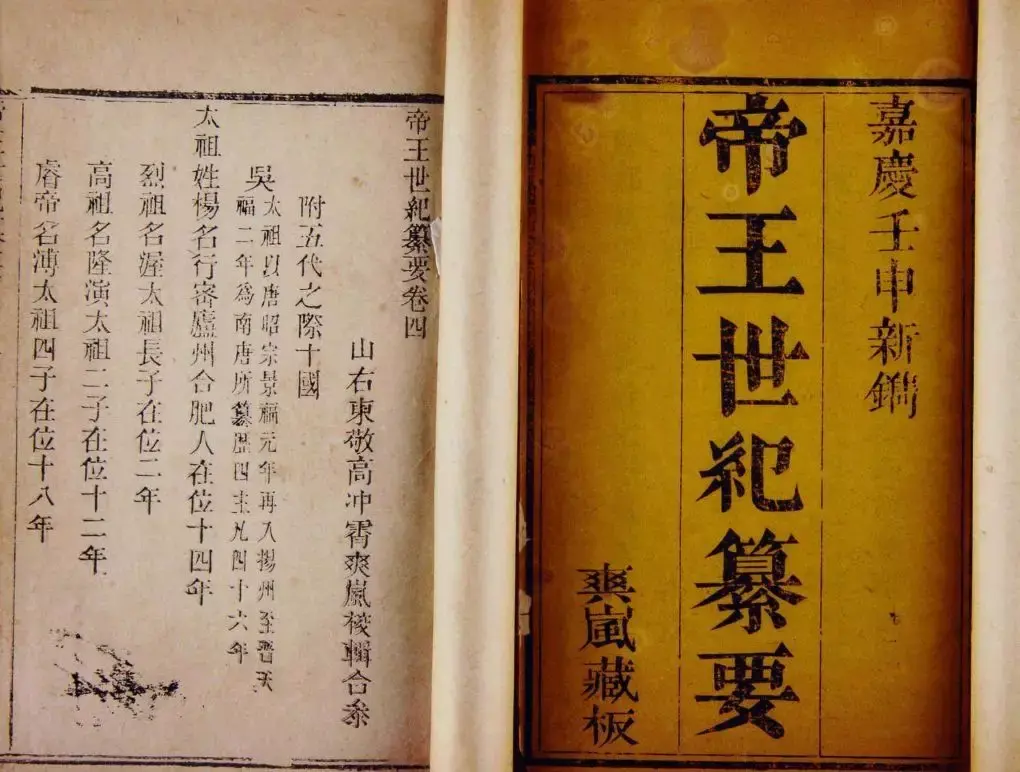 嘉慶壬申新鐫
帝王世紀纂要
爽嵐藏板
帝王世紀纂要卷四
山右東敬高冲霄爽嵐 輯合參
附五代之際十國
吳
太祖以唐昭宗景福元年再入揚州至晋天
福二年為南唐所篡歷四主凡四十六年
太祖姓楊名行密廬州合肥人在位十四年
烈祖名渥太祖長子在位二年
高祖名隆演太祖二子在位十二年
睿帝名溥太祖四子在位十八年